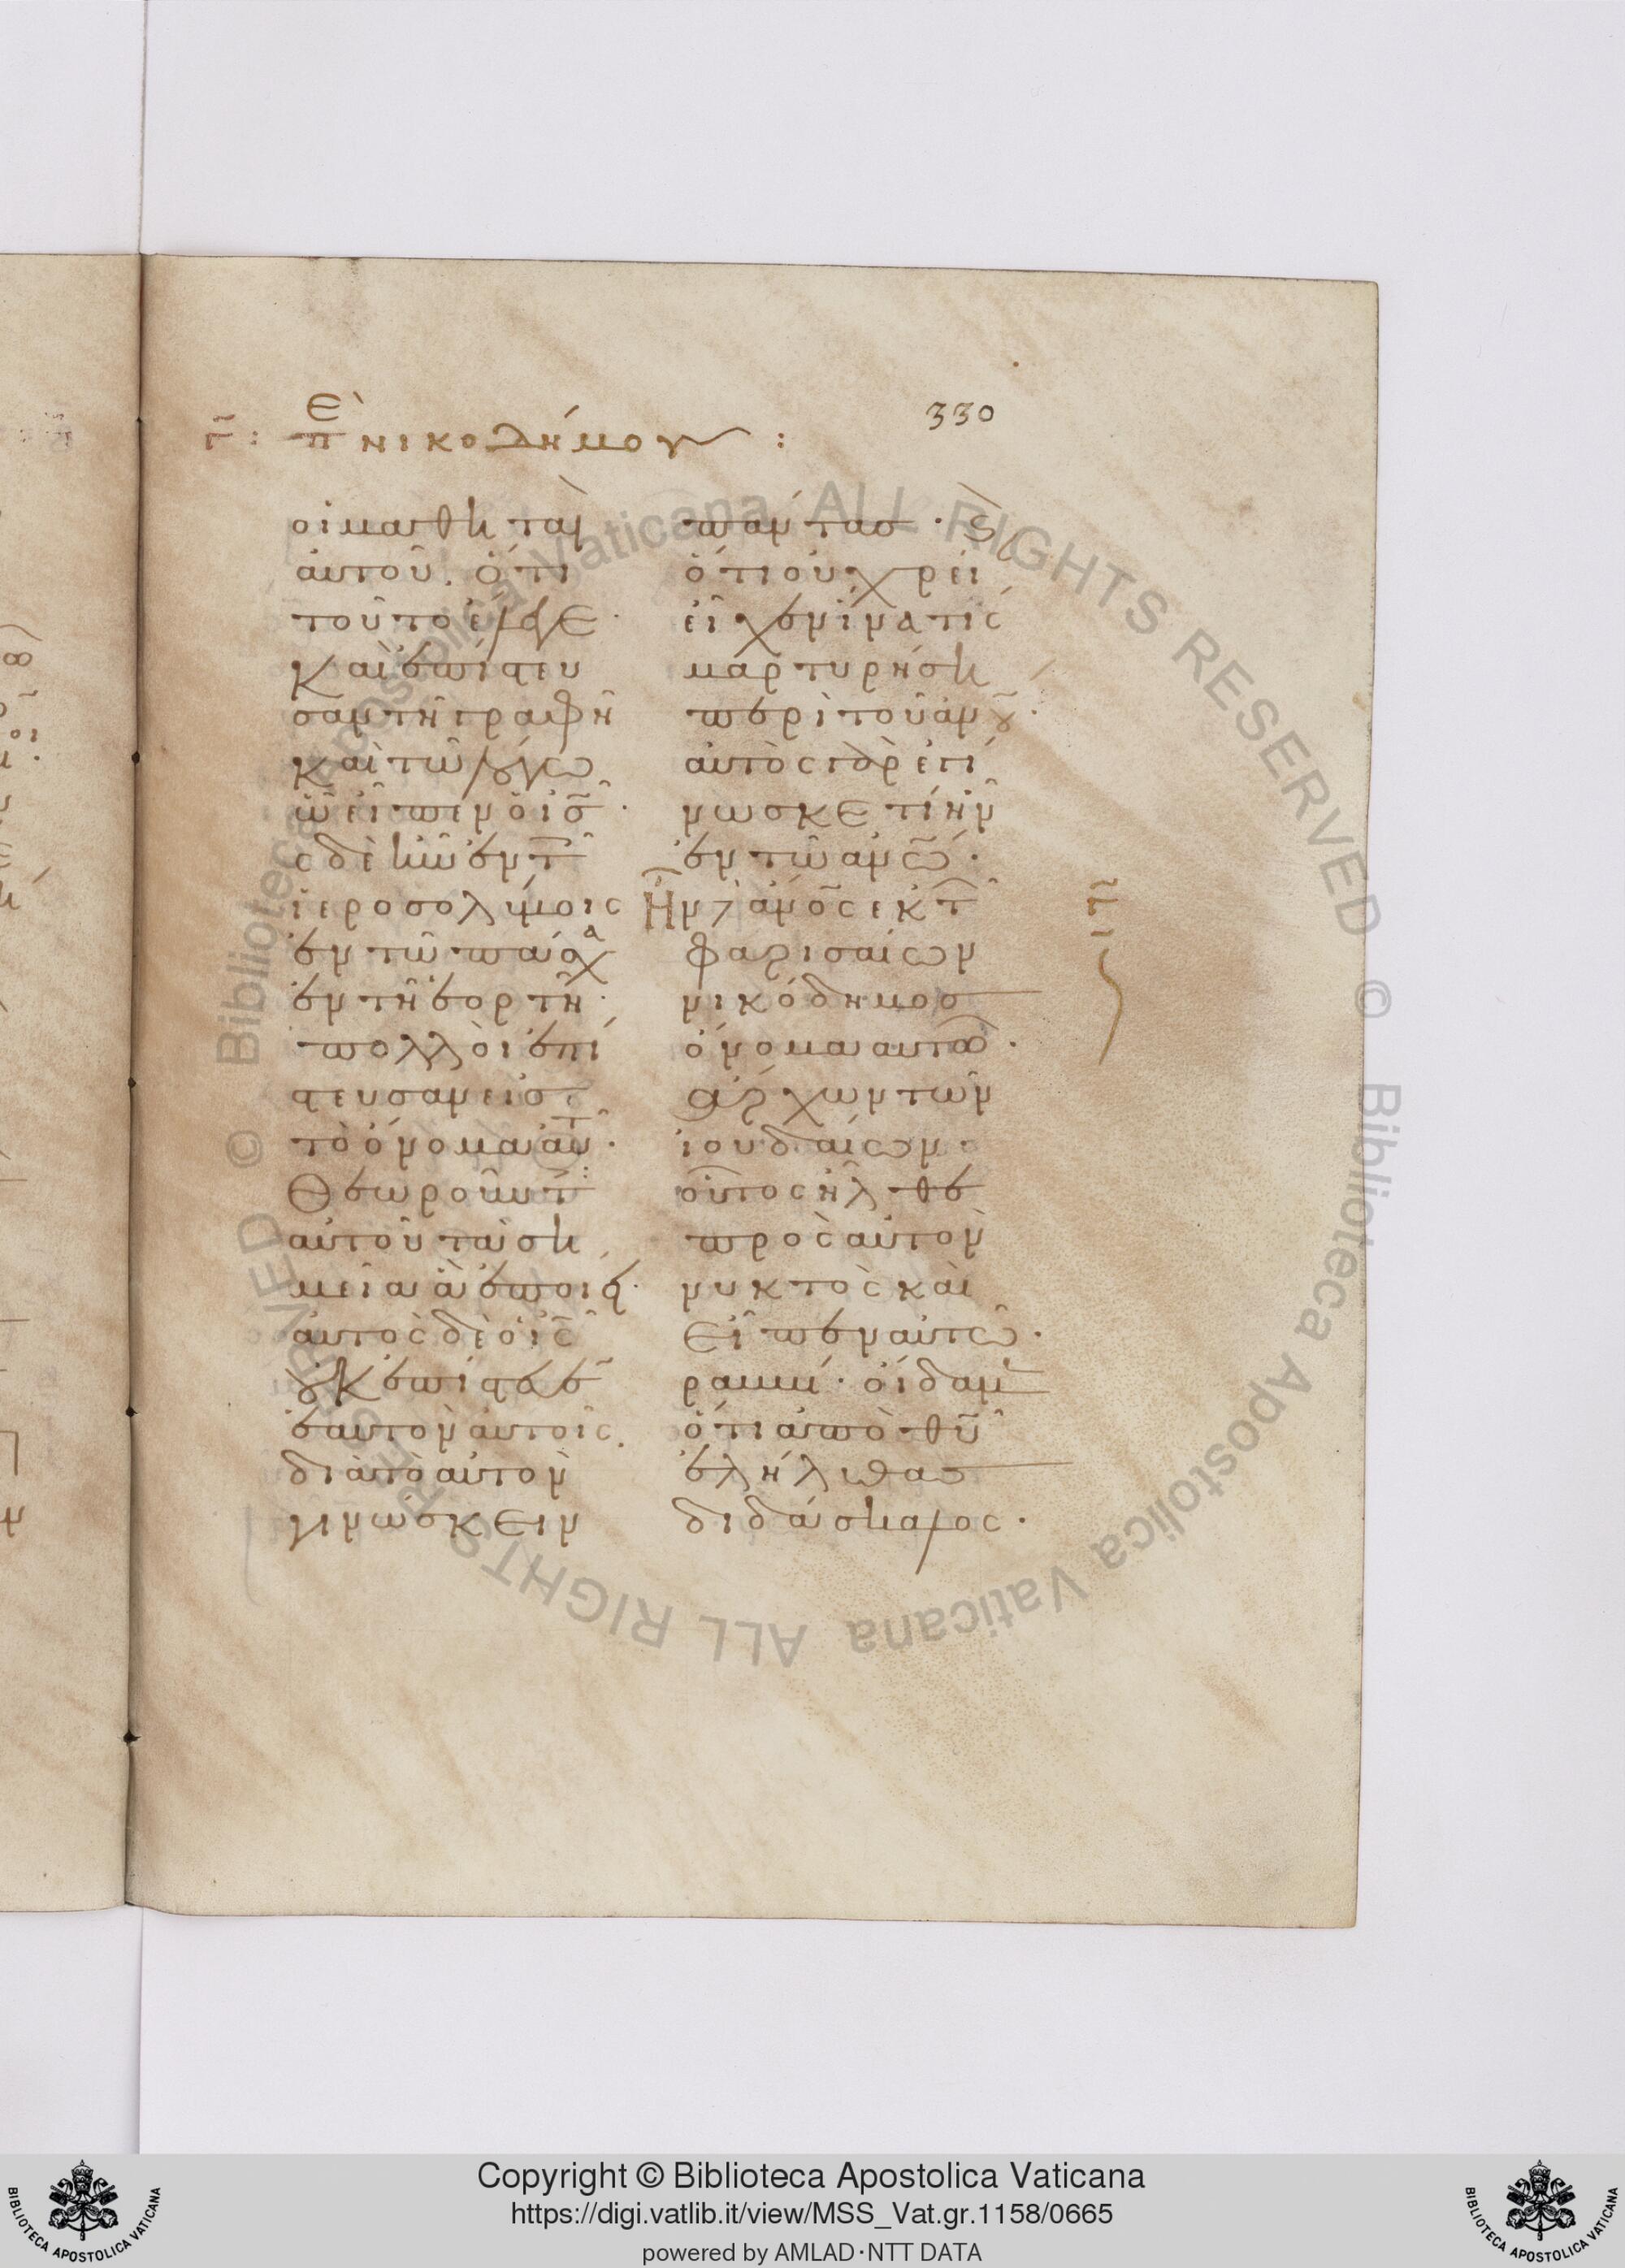 330
Γ̄: ἐπ̀ Νικοδήμου :
οἱ μαθηταὶ
αὐτοῦ. ὅτι
τοῦτο ἔλεγε·
καὶ ἐπίστευ
σαν τῆ γραφῆ
καὶ τῶ λόγω
ὧ εἶπεν ὁ ις̄·
ς δὲ ἦν ἐν τ
ἱεροσολύμοις
ἐν τῶ πάσχα
ἐν τῆ ἑορτῆ·
πολλοὶ ἐπί
στευσαν εἰς
τὸ ὄνομα αὐτ·
Θεωροῦντ
αὐτοῦ τὰ ση
μεῖα ἃ ἐποίει·
αὐτὸς δὲ ὁ ις̄
οὐκ ἐπίστευεν
ἑαυτὸν αὐτοῖς.
διὰ τὸ αὐτὸν
γινώσκειν
πάντας· καὶ
ὅτι οὐ χρεί
εἶχεν ἵνα τίς
μαρτυρήση
περὶ τοῦ ἀνου·
αὐτὸς γὰρ ἐγί
νωσκε τί ἦν
ἐν τῶ ἀνω·
Ἦν δὲ ἀνος ἐκ τ
φαρισαίων
νικόδημος
ὄνομα αὐτῶ·
ἄρχων τῶν
ἰουδαίων·
οὗτος ἦλθε
πρὸς αὐτὸν
νυκτὸς καὶ
εἶπεν αὐτῶ·
ραββί· οἴδαμεν
ὅτι ἀπὸ θυ
ἐλήλυθας
διδάσκαλος·
Copyright © Biblioteca Apostolica Vaticana
https://digi.vatlib.it/view/MSS_Vat.gr.1158/0665
powered by AMLAD·NTT DATA
BIBLIOTECA APOSTOLICA VATICANA
BIBLIOTECA APOSTOLICA VATICANA